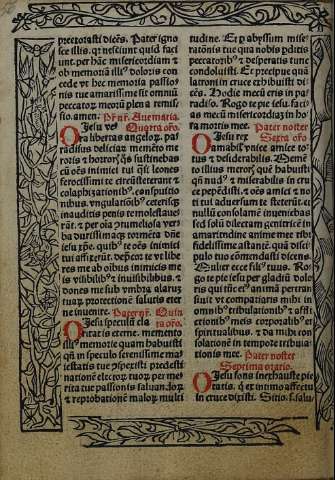 peccorasti dicēs. Pater igno
sce illis. qr nesciunt quid faci
unt. per hāc misericordiam et
ob memoriā illiꝰ doloris con
cede vt hec memoria passio
nis tue amarissime sit omniū
peccatorꝝ meorū plena remis
sio. amen. Pr̄ nr̄. Auemaria.
O Jesu ve⁹ Quarta orō.
ra libertas angelorꝝ. pa
radisus deliciarꝝ memēto me
roris et horrorꝭ qͦs sustinebas
cū oēs inimici tui qͣsi leones
ferocissimi te circūsteterant et
colaphizationibꝰ. conspuitio
nibus. vngulationibꝰ ceterisqꝫ
inauditis penis te molestaue
rāt. et per oīa
ha durissimaqꝫ tormēta dn̄e
iesu xp̄e. quibꝰ te oēs inimici
tui affixerūt. depcor te vt libe
res me ab oībus inimicis me
is visibilibꝰ et inuisibilibus. et
dones me sub vmbra alarum
tuarꝝ protectionē salutis eter
ne inuenire. Pater nr̄. Quin
O Jesu speculū cla ta orō.
ritatis eterne. memento
illiꝰ memorie quam habuisti
qn̄ in speculo serenissime ma
iestatis tue p̄spexisti predesti
nationē electorꝝ tuorꝝ per me
rita tue passionis saluandorꝝ
et reprobationē malorꝝ multi
tudine. Et p abyssum mise
ratōnis tue qua nobis pditis
peccatoribꝰ et desperatis tunc
condoluisti. Et precipue quā
latroni in cruce exhibuisti di
cēs. Hodie mecū cris in pa
radiso. Rogo te pie iesu. faci
as mecū misericordiā in ho
ra mortis mee. Pater noster
O Jesu rex Sexta orō
amabilꝭ vnice amice to
tus et desiderabilis. Memē
to illius merorꝭ quē habuisti
qn̄ nudꝰ et miserabilis in cru
ce pepēdisti. et oēs amici et no
ti tui aduersum te steterūt. et
nullū consolantē inueniebas
sed solū dilectam genitricē in
amaritudine anime tue stāte
fidelissime astantē. quā disci
pulo tuo cōmendasti dicens.
Mulier ecce filiꝰ tuus. Rogo
te pie iesu per gladiū dolo
ris qui tūc eiꝰ animā pertran
siuit vt compatiaris mihi in
omībꝰ tribulationibꝰ et affli
ctionibꝰ meis corporalibꝰ et
spiritualibus. et da mihi con
solationē in tempore tribula
tionis mee. Pater noster
Septima oratio.
O Jesu fons inexhauste pie
tatis. qͥ ex intimo affectu
in cruce dixisti. Sitio. s. salu